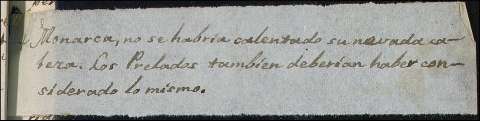 Monarca, no se habria calentado su nevada ca-
beza. Los Prelados tambien deberian haber con-
siderado lo mismo.